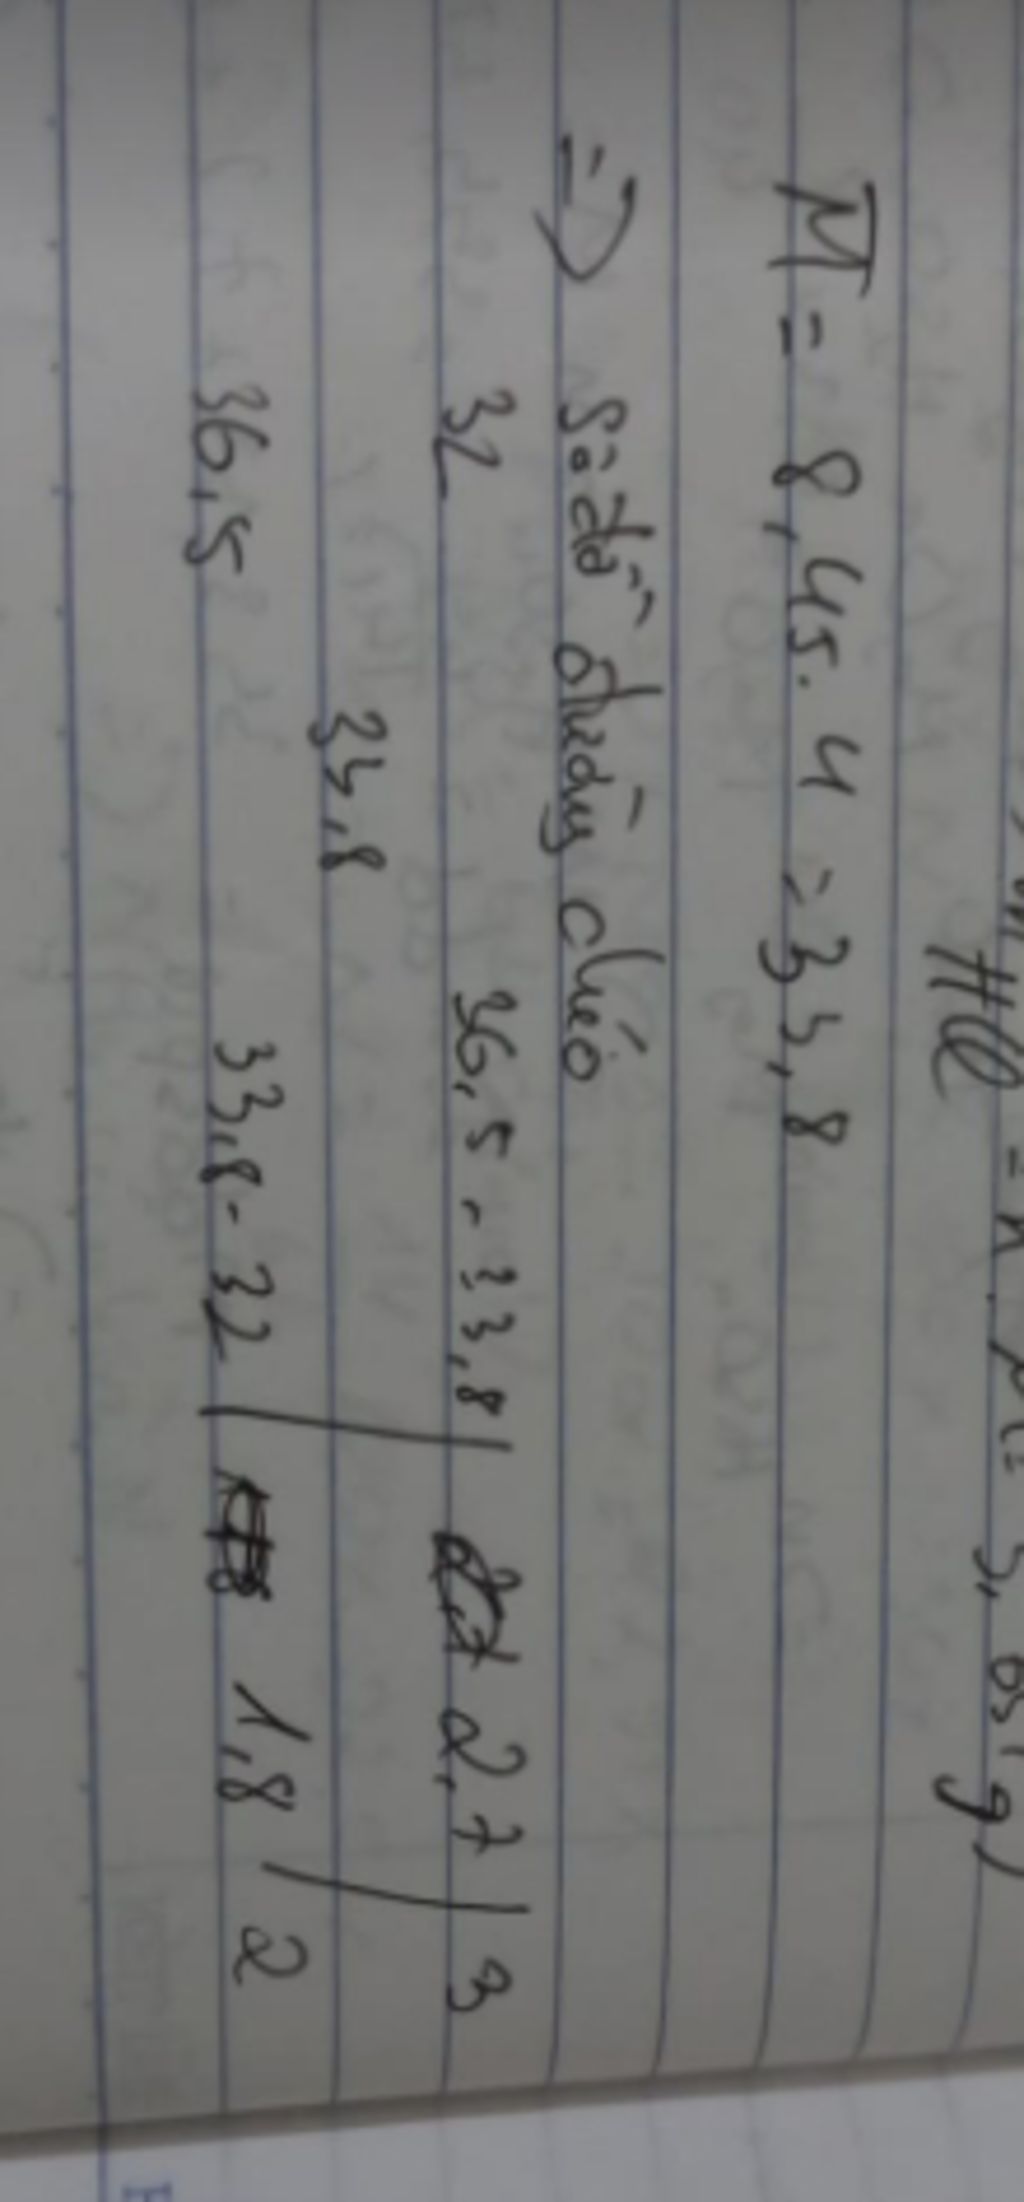 HCl = n. M = 3,65 (g)
M̅ = 8,45.4 = 33,8
=> Sơ đồ đường chéo
32 36,5 - 33,8 | 2,7 | 3
33,8
36,5 33,8 - 32 | 1,8 | 2